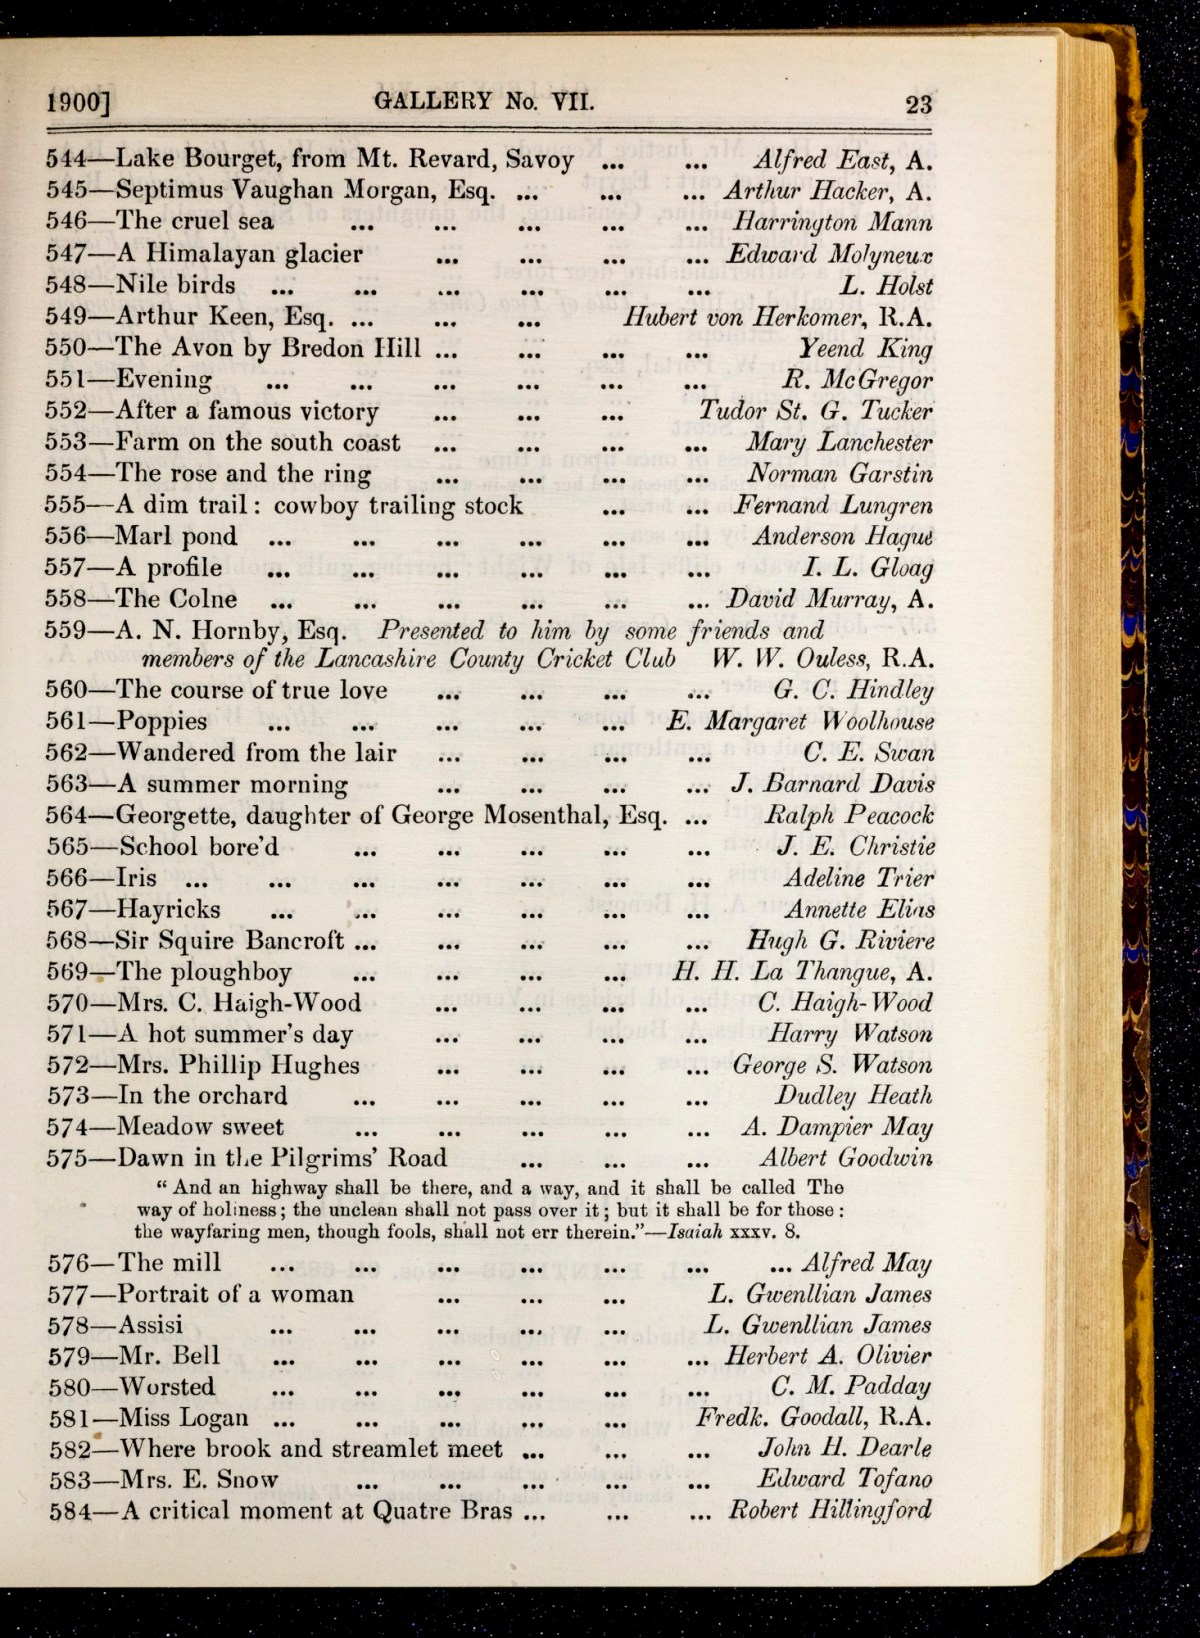 1900] GALLERY No. VII. 23
544—Lake Bourget, from Mt. Revard, Savoy ... ... Alfred East, A.
545—Septimus Vaughan Morgan, Esq. ... ... ... Arthur Hacker, A.
546—The cruel sea ... ... ... ... ... Harrington Mann
547—A Himalayan glacier ... ... ... ... Edward Molyneux
548—Nile birds ... ... ... ... ... ... L. Holst
549—Arthur Keen, Esq. ... ... ... Hubert von Herkomer, R.A.
550—The Avon by Bredon Hill ... ... ... ... Yeend King
551—Evening ... ... ... ... ... ... R. McGregor
552—After a famous victory ... ... ... Tudor St. G. Tucker
553—Farm on the south coast ... ... ... ... Mary Lanchester
554—The rose and the ring ... ... ... ... Norman Garstin
555—A dim trail: cowboy trailing stock ... ... Fernand Lungren
556—Marl pond ... ... ... ... ... ... Anderson Hague
557—A profile ... ... ... ... ... ... I. L. Gloag
558—The Colne ... ... ... ... ... ... David Murray, A.
559—A. N. Hornby, Esq. Presented to him by some friends and
members of the Lancashire County Cricket Club W. W. Ouless, R.A.
560—The course of true love ... ... ... ... G. C. Hindley
561—Poppies ... ... ... ... ... E. Margaret Woolhouse
562—Wandered from the lair ... ... ... ... C. E. Swan
563—A summer morning ... ... ... ... J. Barnard Davis
564—Georgette, daughter of George Mosenthal, Esq. ... Ralph Peacock
565—School bore'd ... ... ... ... ... J. E. Christie
566—Iris ... ... ... ... ... ... ... Adeline Trier
567—Hayricks ... ... ... ... ... ... Annette Elias
568—Sir Squire Bancroft ... ... ... ... ... Hugh G. Riviere
569—The ploughboy ... ... ... ... H. H. La Thangue, A.
570—Mrs. C. Haigh-Wood ... ... ... ... C. Haigh-Wood
571—A hot summer's day ... ... ... ... Harry Watson
572—Mrs. Phillip Hughes ... ... ... ... George S. Watson
573—In the orchard ... ... ... ... ... Dudley Heath
574—Meadow sweet ... ... ... ... ... A. Dampier May
575—Dawn in the Pilgrims' Road ... ... ... Albert Goodwin
“And an highway shall be there, and a way, and it shall be called The
way of holiness; the unclean shall not pass over it; but it shall be for those:
the wayfaring men, though fools, shall not err therein.”—Isaiah xxxv. 8.
576—The mill ... ... ... ... ... ... ... Alfred May
577—Portrait of a woman ... ... ... L. Gwenllian James
578—Assisi ... ... ... ... ... L. Gwenllian James
579—Mr. Bell ... ... ... ... ... ... Herbert A. Olivier
580—Worsted ... ... ... ... ... ... C. M. Padday
581—Miss Logan ... ... ... ... ... Fredk. Goodall, R.A.
582—Where brook and streamlet meet ... ... ... John H. Dearle
583—Mrs. E. Snow ... ... ... ... ... Edward Tofano
584—A critical moment at Quatre Bras ... ... ... Robert Hillingford